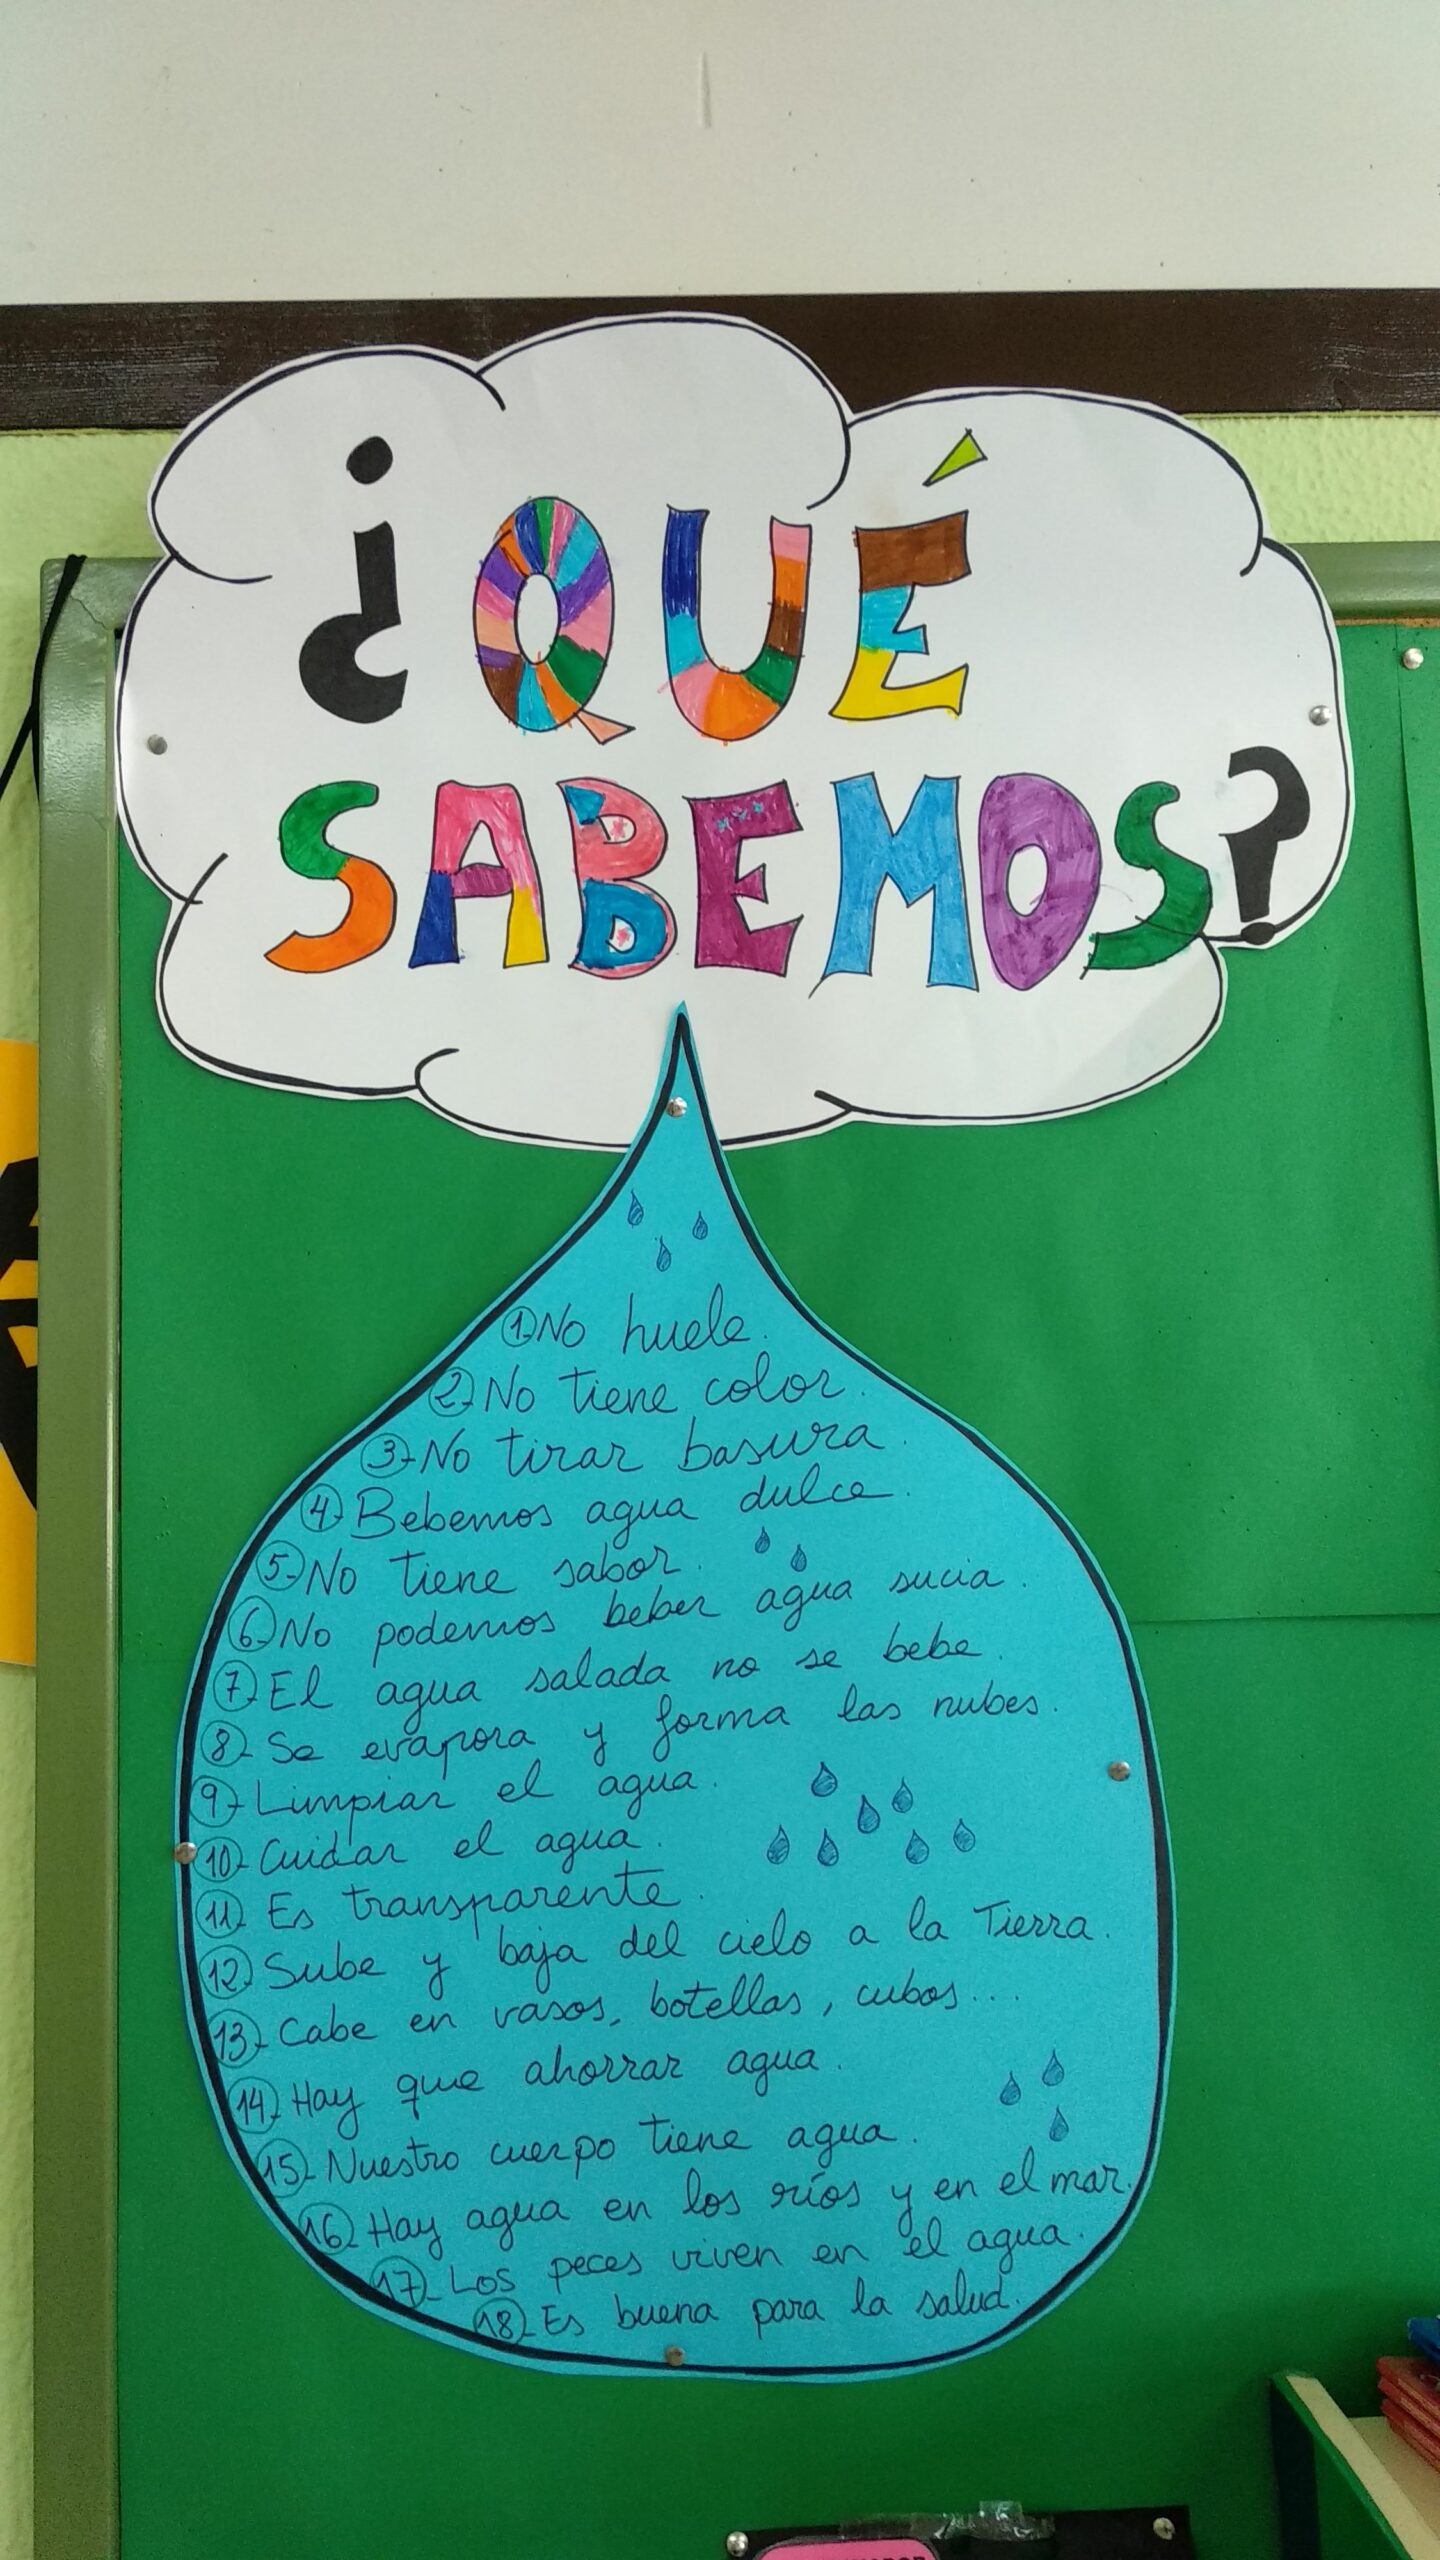 ¿QUÉ
SABEMOS?
1- No huele.
2- No tiene color.
3- No tirar basura.
4- Bebemos agua dulce.
5- No tiene sabor.
6- No podemos beber agua sucia.
7- El agua salada no se bebe.
8- Se evapora y forma las nubes.
9- Limpiar el agua.
10- Cuidar el agua.
11- Es transparente.
12- Sube y baja del cielo a la Tierra.
13- Cabe en vasos, botellas, cubos...
14- Hay que ahorrar agua.
15- Nuestro cuerpo tiene agua.
16- Hay agua en los ríos y en el mar.
17- Los peces viven en el agua.
18- Es buena para la salud.